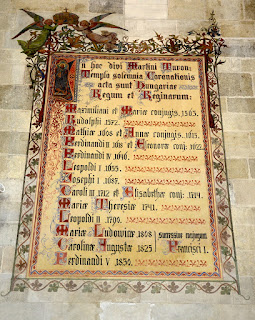 In hoc divi Martini Turon:
Templo solemnia Coronationis
acta sunt Hungariae
Regum et Reginarum:
Maximiliani et Mariae conjugis. 1563.
Rudolphi 1572.
Mathiae 1608 et Annae conjugis. 1613.
Ferdinandi II 1618 et Eleonorae conj: 1622.
Ferdinandi IV 1646.
Leopoldi I 1655.
Josephi I 1687.
Caroli III 1712 et Elisabethae conj: 1714.
Mariae Theresiae 1741.
Leopoldi II 1790.
Mariae Ludovicae 1808
Carolinae Augustae 1825
successive conjugum
Francisci I.
Ferdinandi V 1830.